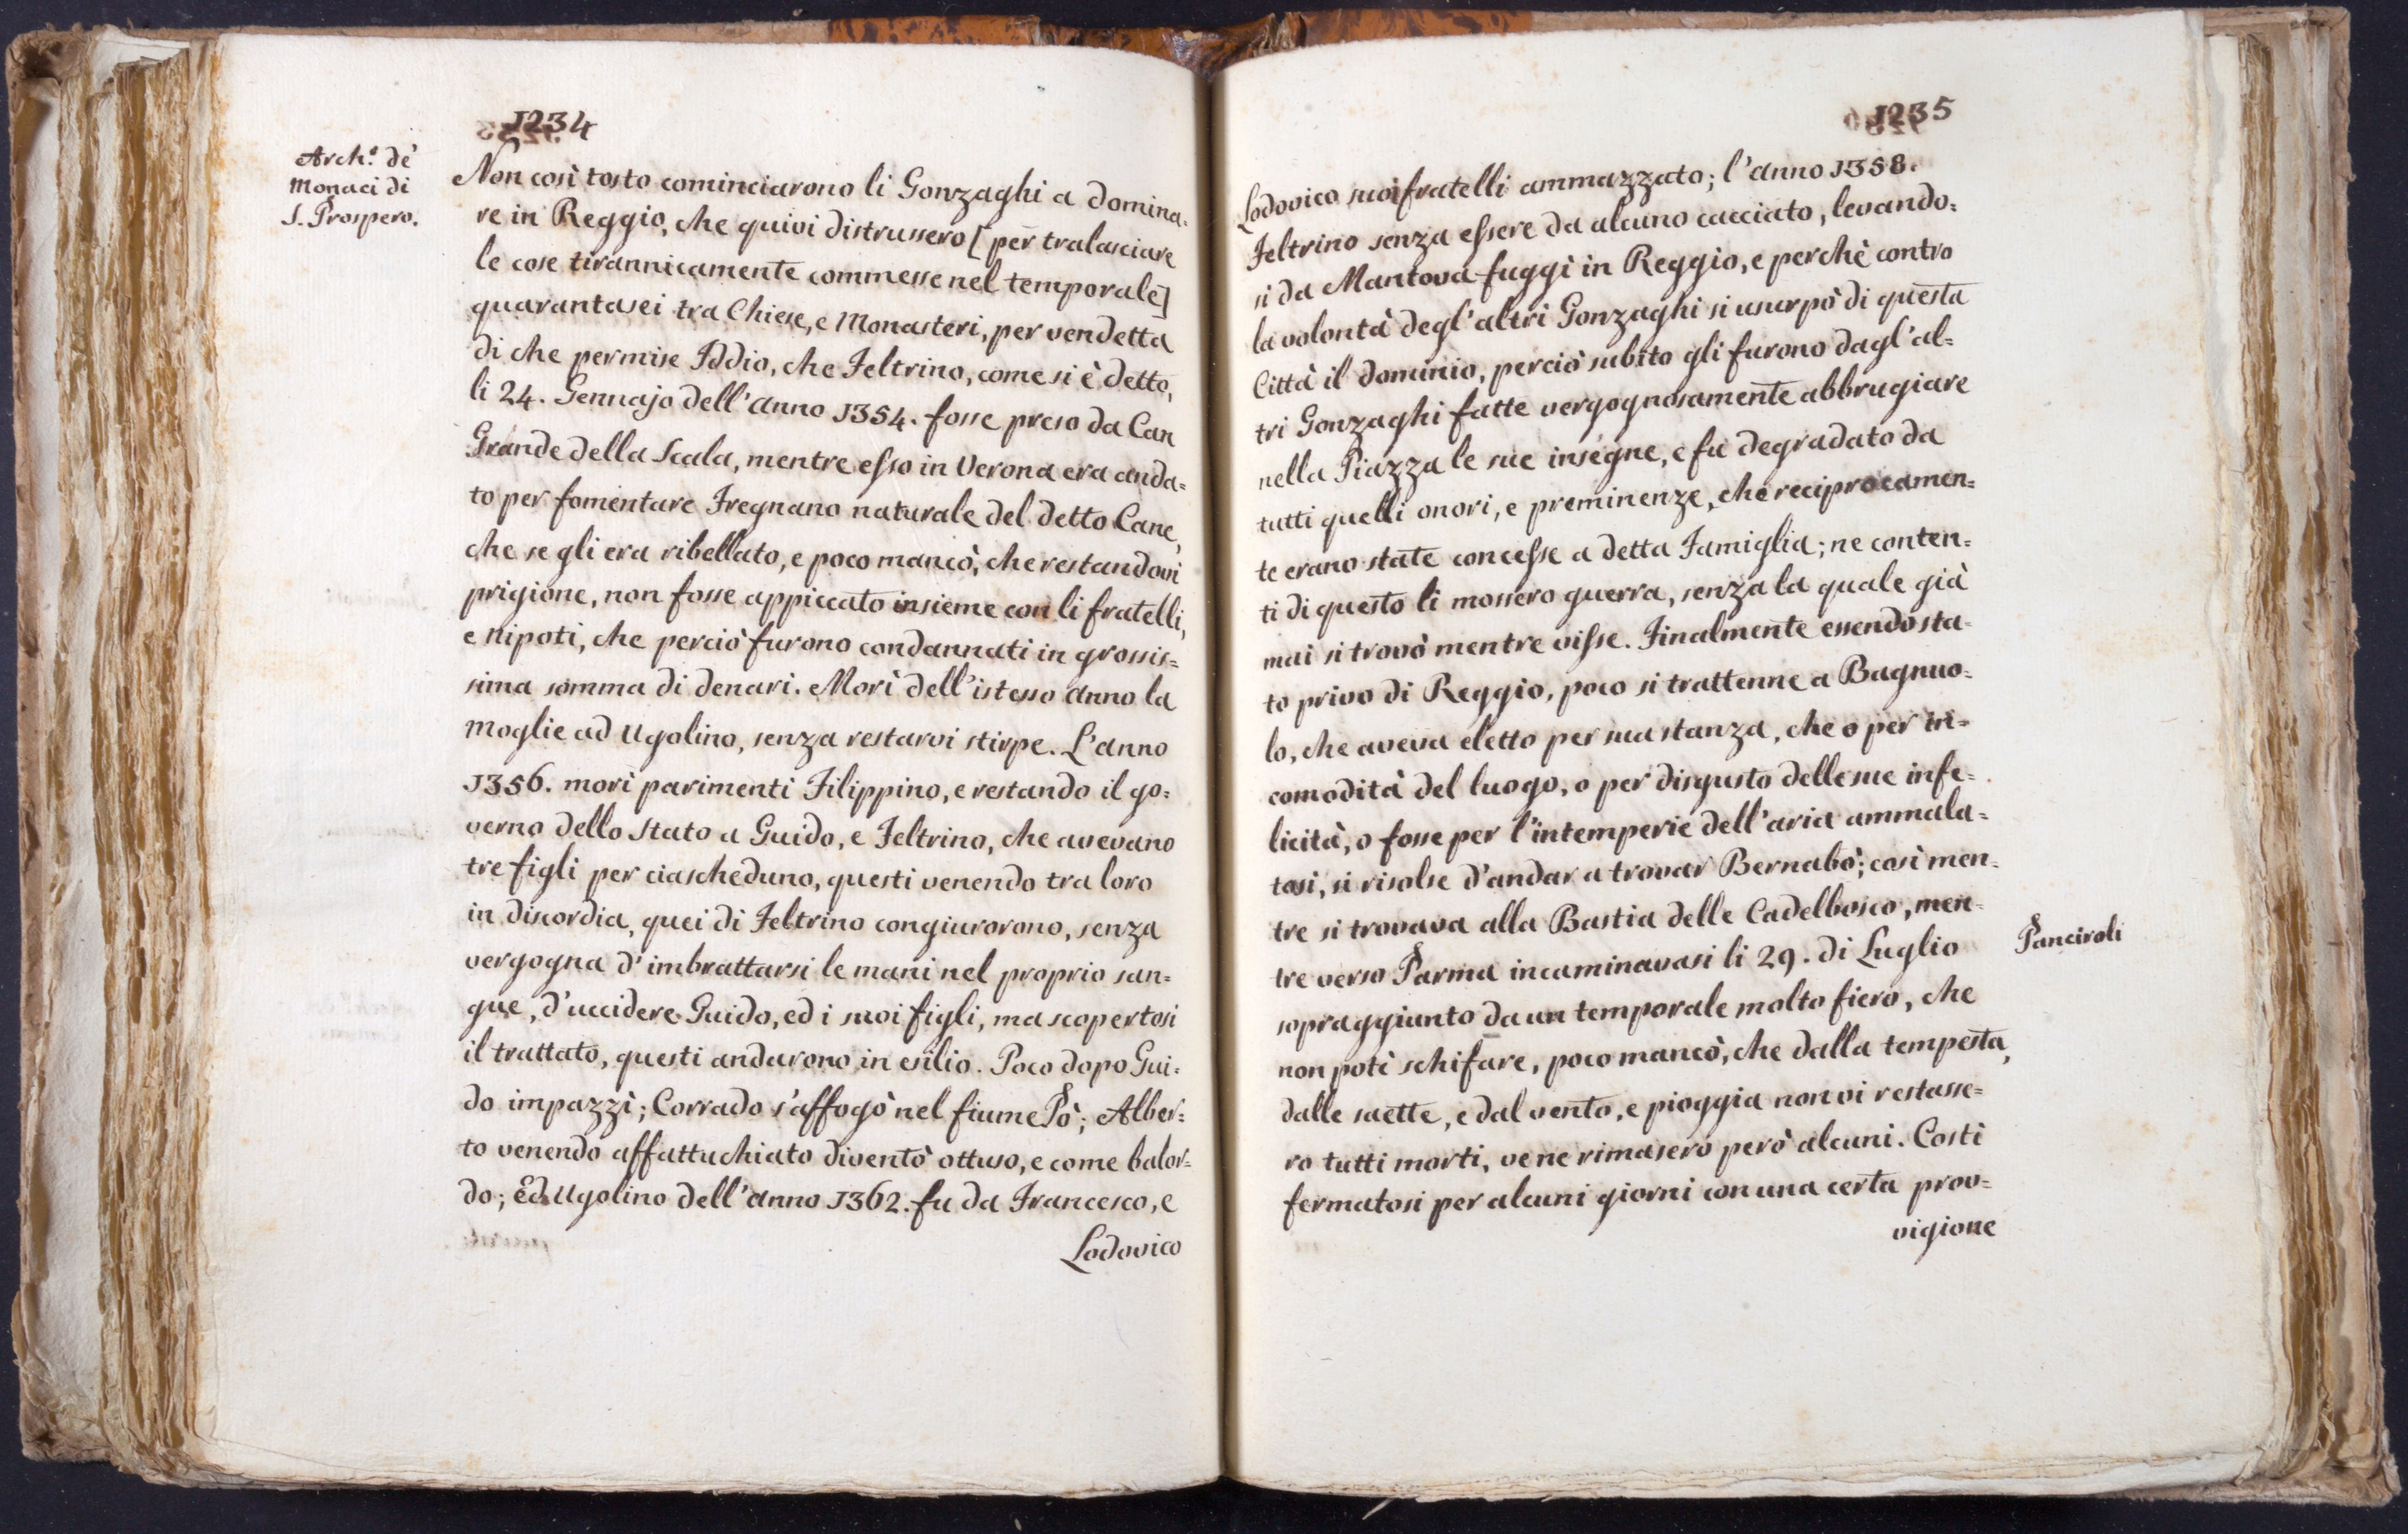 1234
Arch.º de'
Monaci di
S. Prospero.
Non così tosto cominciarono li Gonzaghi a domina=
re in Reggio, che quivi distrussero [per tralasciare
le cose tirannicamente commesse nel temporale]
quarantasei tra Chiese, e Monasteri, per vendetta
di che permise Iddio, che Feltrino, come si è detto,
li 24. Gennajo dell'anno 1354. fosse preso da Can
Grande della Scala, mentre esso in Verona era anda=
to per fomentare Fregnano naturale del detto Cane,
che se gli era ribellato, e poco mancò, che restandovi
prigione, non fosse appiccato insieme con li fratelli,
e nipoti, che perciò furono condannati in grossis=
sima somma di denari. Morì dell'istesso anno la
moglie ad Ugolino, senza restarvi stirpe. L'anno
1356. morì parimenti Filippino, e restando il go=
verno dello Stato a Guido, e Feltrino, che avevano
tre figli per ciascheduno, questi venendo tra loro
in discordia, quei di Feltrino congiurorono, senza
vergogna d'imbrattarsi le mani nel proprio san=
gue, d'uccidere Guido, ed i suoi figli, ma scopertosi
il trattato, questi andarono in esilio. Poco dopo Gui=
do impazzì; Corrado s'affogò nel fiume Pò; Alber=
to venendo affattuchiato diventò ottuso, e come balor=
do; Ed Ugolino dell'anno 1362. fu da Francesco, e
Lodovico
1235
Lodovico suoi fratelli ammazzato; l'anno 1358.
Feltrino senza essere da alcuno cacciato, levando=
si da Mantova fuggì in Reggio, e perchè contro
la volontà degl'altri Gonzaghi si usurpò di questa
Città il dominio, perciò subito gli furono dagl'al=
tri Gonzaghi fatte vergognosamente abbrugiare
nella Piazza le sue insegne, e fu degradato da
tutti quelli onori, e preminenze, che reciprocamen=
te erano state concesse a detta Famiglia; ne conten=
ti di questo li mossero guerra, senza la quale già
mai si trovò mentre visse. Finalmente essendo sta=
to privo di Reggio, poco si trattenne a Bagnuo=
lo, che aveva eletto per sua stanza, che o per in=
comodità del luogo, o per disgusto delle sue infe=
licità, o fosse per l'intemperie dell'aria ammala=
tosi, si risolse d'andar a trovar Bernabò; così men=
tre si trovava alla Bastia delle Cadelbosco, men=
tre verso Parma incaminavasi li 29. di Luglio
Panciroli
sopraggiunto da un temporale molto fiero, che
non potè schifare, poco mancò, che dalla tempesta,
dalle saette, e dal vento, e pioggia non vi restasse=
ro tutti morti, ve ne rimasero però alcuni. Costì
fermatosi per alcuni giorni con una certa prov=
vigione